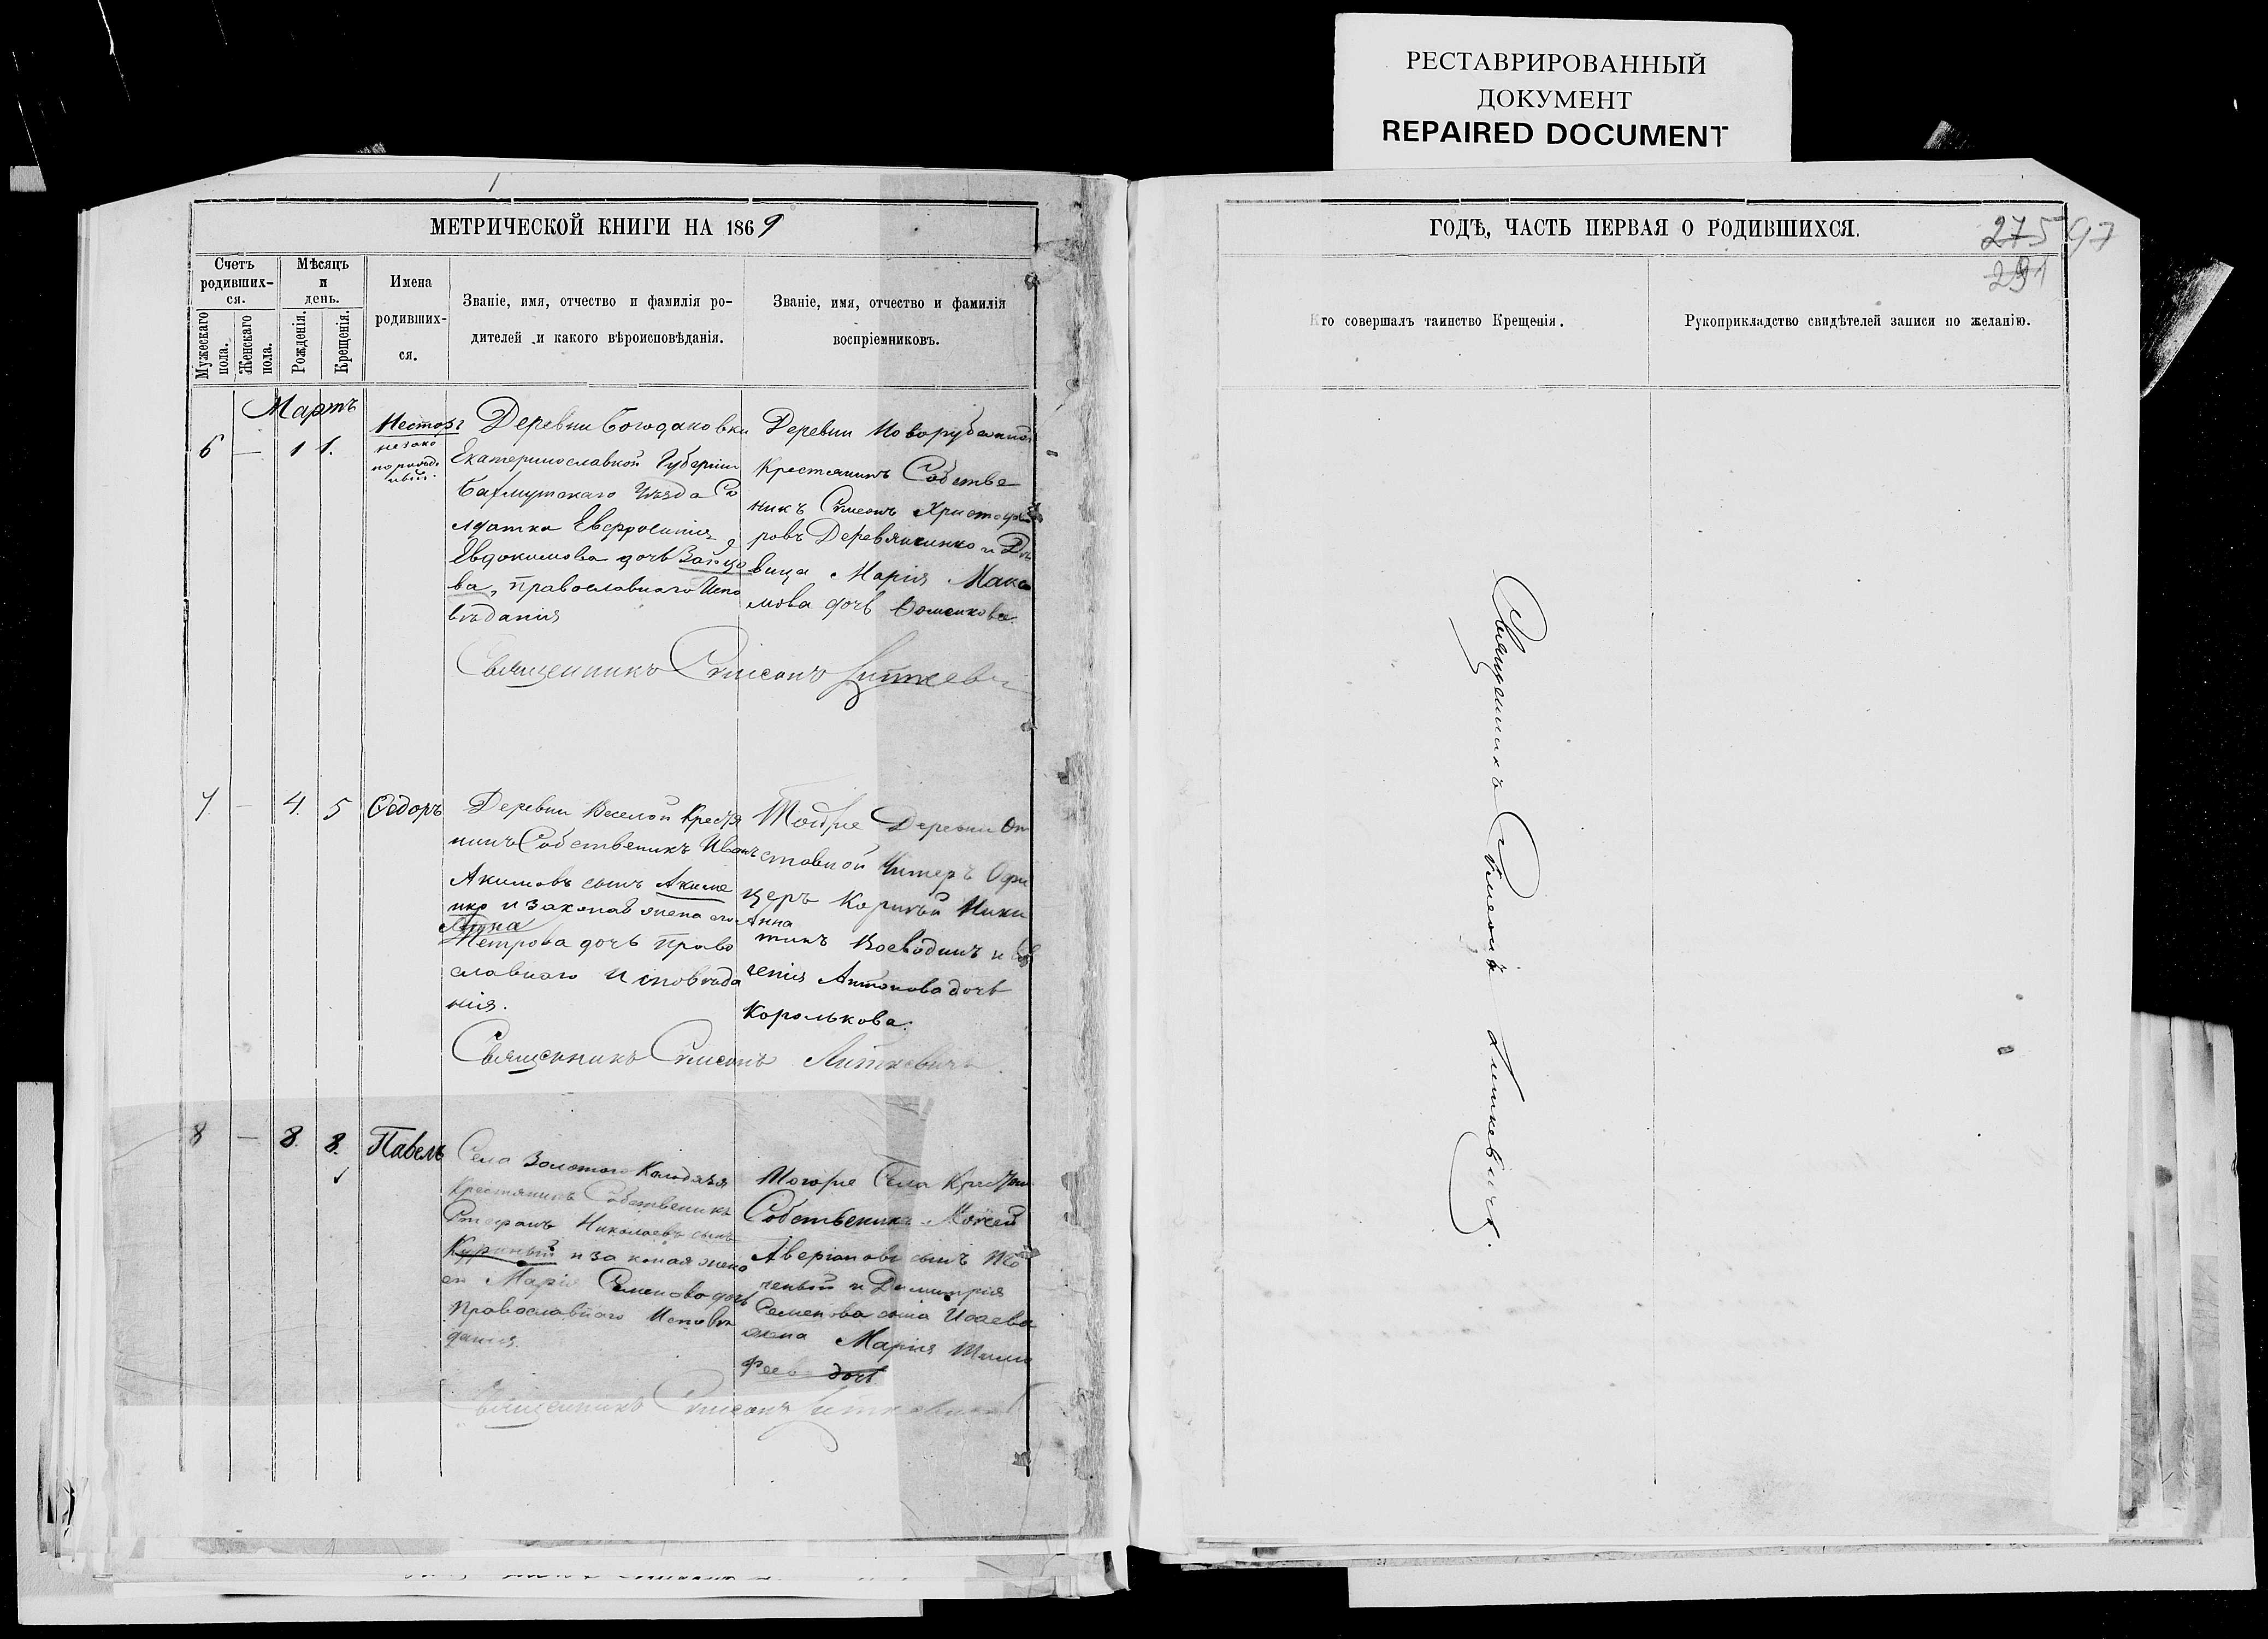 РЕСТАВРИРОВАННЫЙ
ДОКУМЕНТ
REPAIRED DOCUMENT
МЕТРИЧЕСКОЙ КНИГИ НА 1869
Счетъ
родивших-
ся.
Мужескаго
пола.
Женскаго
пола.
Мѣсяцъ
и
день.
Рожденія.
Крещенія.
Имена
родивших-
ся.
Званіе, имя, отчество и фамилія ро-
дителей и какого вѣроисповѣданія.
Званіе, имя, отчество и фамилія
воспріемниковъ.
Мартъ
6 — 1 1.
Несторъ
незако
норожд
Деревни Богодановки
Екатеринославкой Губерніи
Бахмутскаго Уѣзда Со
лдатка Евфросинія
Евдокимова дочь Зайцо
ва, православнаго Испо
вѣданія
Деревни Новорубежной
Крестянинъ Собстве
никъ Симеонъ Христофо
ровъ Деревянкинко и Дѣ
вица Марія Макси
мова дочь Фоменкова.
Священникъ Симеонъ Литкевичъ
7 — 4. 5 Ѳедоръ
Деревни Веселой Кресья
нинъ Собственикъ Иванъ
Акимовъ сынъ Акиме
нко и законая жена его Анна
Петрова дочь Право
славнаго Исповѣда
нія.
Тойже Деревни От
ставной Унтеръ Офи
церъ Корнѣй Ники
тинъ Воеводинъ и Ев
генія Антонова дочь
Королькова.
Священникъ Симеонъ Литкевичъ.
8 — 8. 8. Павелъ
Села Золотого Колодязя
Крестянинъ Собственикъ
Стефанъ Николаевъ сынъ
Куриный и законая жена
его Марія Семенова дочь
Православнаго Исповѣ
данія.
Тогоже Села Крестян
Собственикъ Моѵсей
Аверіановъ сынъ
и Димитрія
Семенова сына Исаева
жена Марія Тимо
феева дочь
Священникъ Симеонъ Литкевичъ
ГОДѢ, ЧАСТЬ ПЕРВАЯ О РОДИВШИХСЯ.
275 97
291
Кто совершалъ таинство Крещенія.
Рукоприкладство свидѣтелей записи по желанію.
Священникъ Симеонъ Литкевичъ.